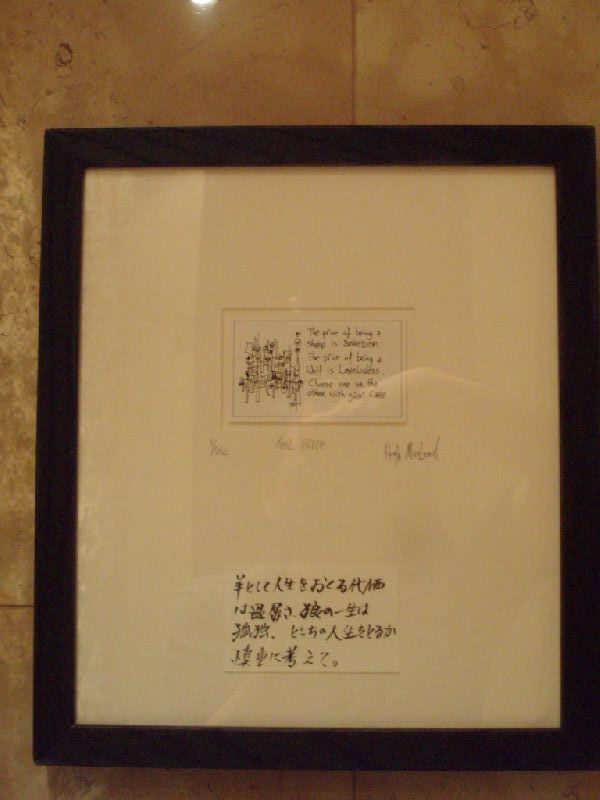 The price of being a
sheep is boredom.
The price of being a
Wolf is Loneliness.
Choose one or the
other with great care
The Price
Hugh MacLeod
羊として人生をおくる代価
は退屈さ、狼の一生は
孤独、どっちの人生をとるか
慎重に考えて。